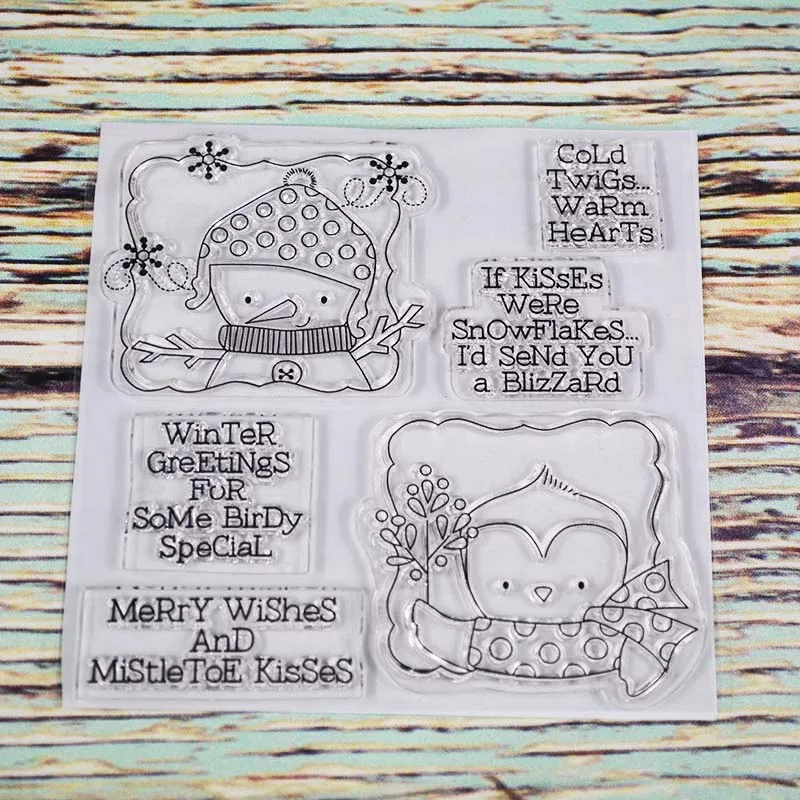 CoLd
TwiGs...
WaRm
HeArTs
If KiSsEs
WeRe
SnOwFlaKeS...
I'd SeNd YoU
a BlizZaRd
WinTeR
GreEtiNgS
FoR
SoMe BirDy
SpeCiaL
MeRrY WiSheS
AnD
MiStleToE KisSeS